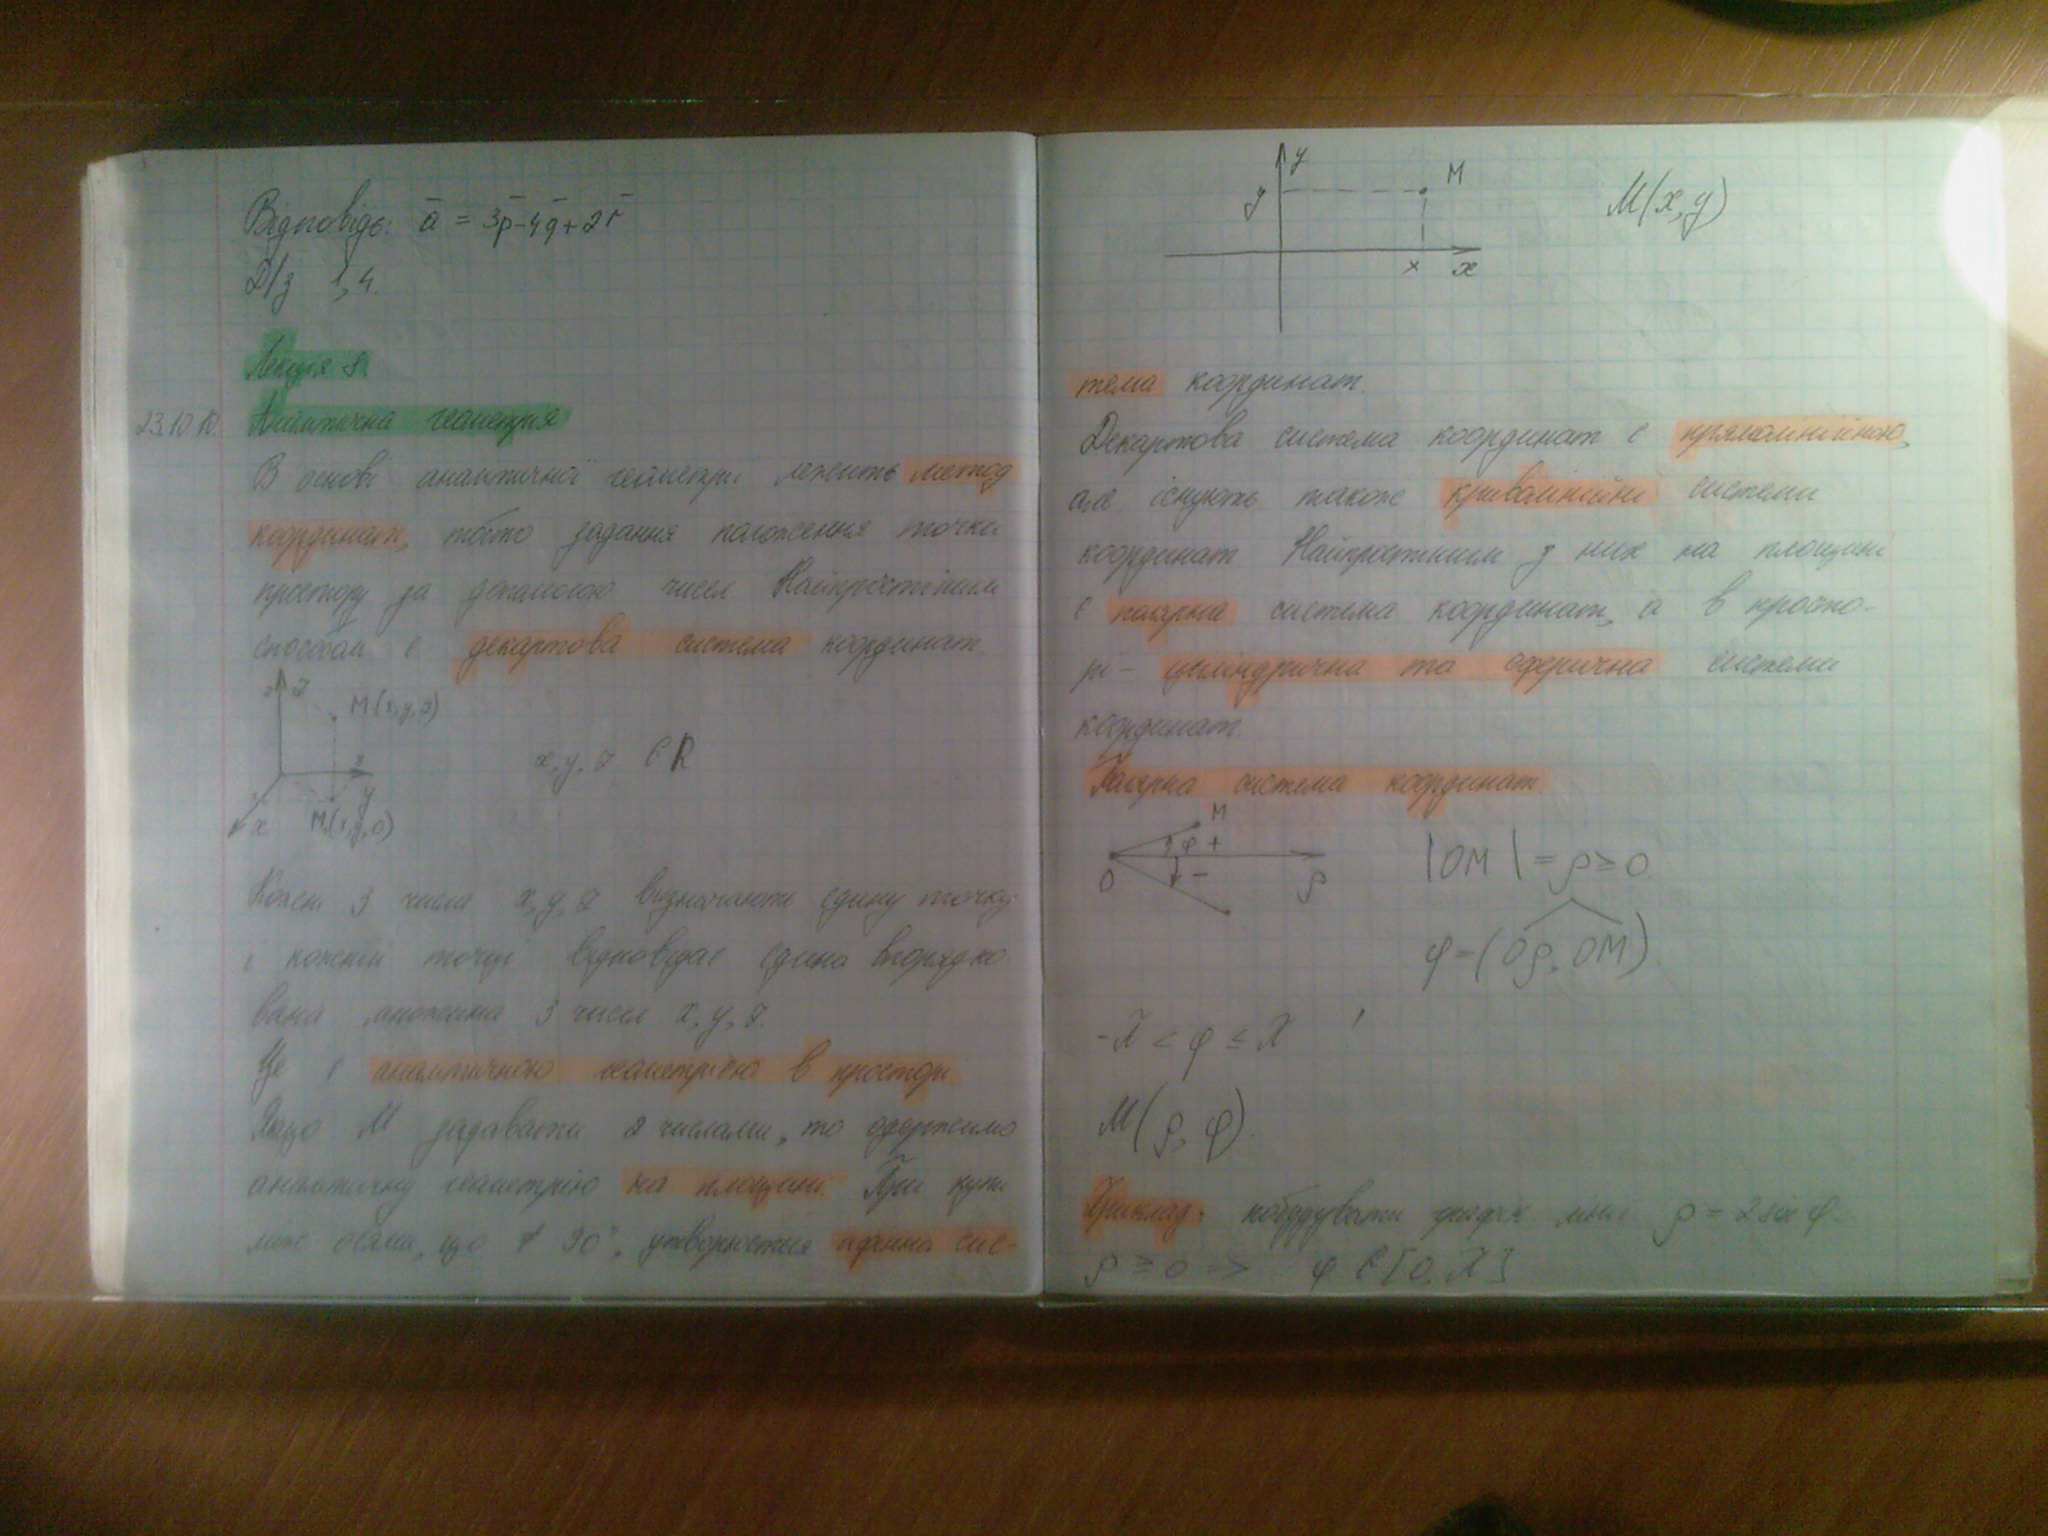 Відповідь: a̅ = 3p̅-4q̅+2r̅
Д/з 1,4.
Лекція 8.
23.10.
Аналітична геометрія
В основі аналітичної геометрії лежить метод
координат, тобто задання положення точки
простору за допомогою чисел Найпростішим
способом є декартова система координат.
z
M(x,y,z)
x, y, z ∈ R
y
x
M₁(x,y,0)
Кожні 3 числа x, y, z визначають єдину точку
і кожній точці відповідає єдина впорядко-
вана множина 3 чисел x, y, z.
Це є аналітичною геометрією в просторі
Якщо M задавати 2 числами, то одержимо
аналітичну геометрію на площині. При куті
між осями, що ≠ 90°, утворюється афінна сис-
y
y
M
M(x, y)
x
x
тема координат.
Декартова система координат є прямолінійною,
але існують також криволінійні системи
координат Найпростішим з них на площині
є полярна система координат, а в просто-
рі - циліндрична та сферична системи
координат.
Полярна система координат
M
φ +
O
-
ρ
|OM| = ρ ≥ 0.
φ = (Oρ, OM).
-π < φ ≤ π !
M(ρ, φ).
Приклад: побудувати графік лінії ρ = 2 sin φ.
ρ ≥ 0 => φ ∈ [0, π]